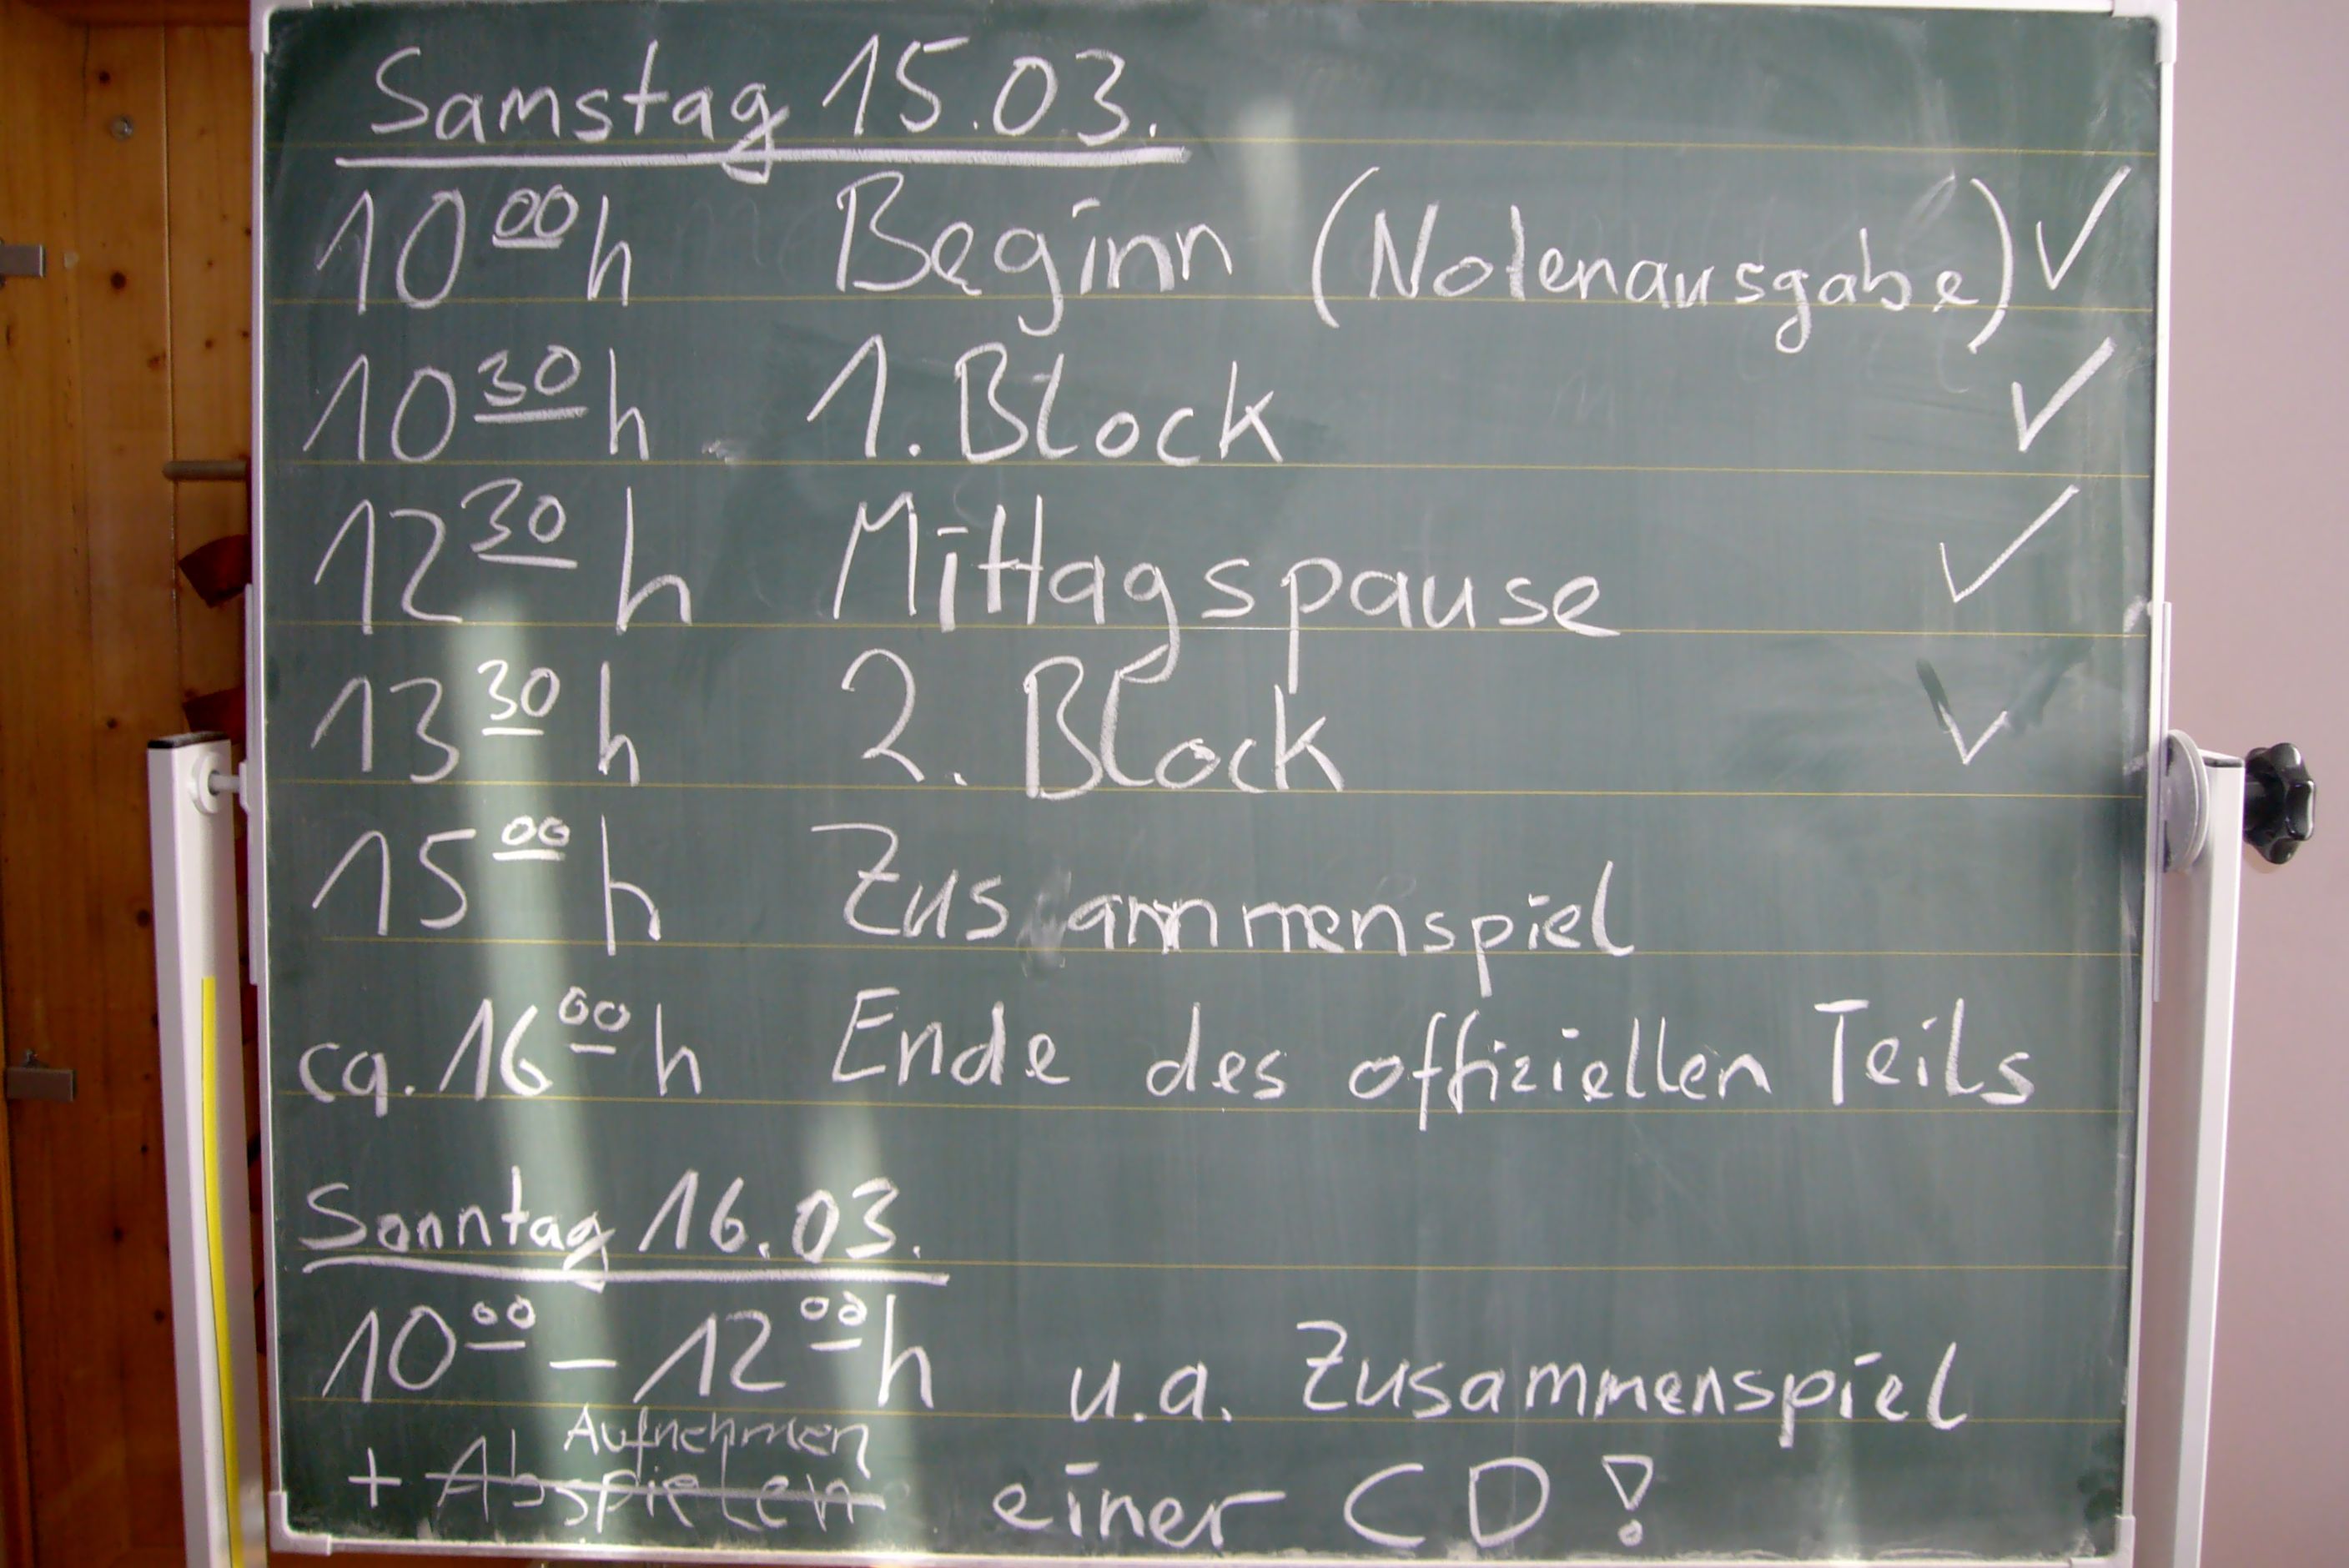 Samstag 15.03.
10 00 h Beginn (Notenausgabe) ✓
10 30 h 1. Block ✓
12 30 h Mittagspause ✓
13 30 h 2. Block ✓
15 00 h Zusammenspiel
ca. 16 00 h Ende des offiziellen Teils
Sonntag 16.03.
10 00 – 12 00 h u.a. Zusammenspiel
Aufnehmen
+ Abspielen einer CD!